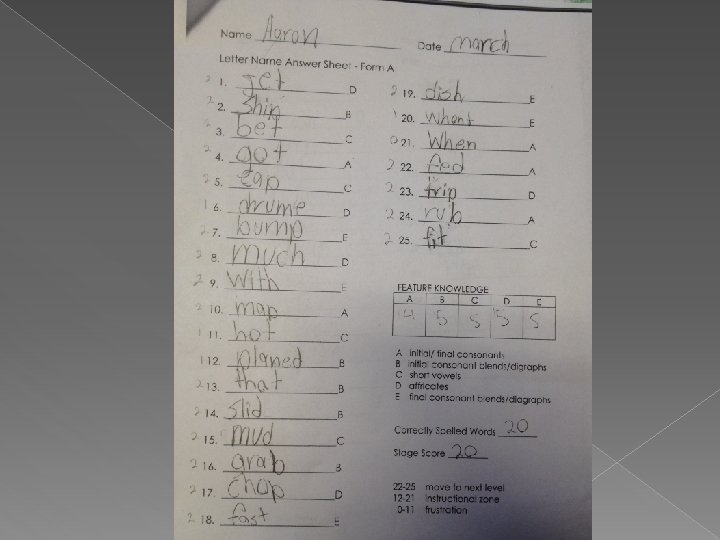 Name Aaron Date march
Letter Name Answer Sheet - Form A
2 1. get D
2 2. Shin B
2 3. bet C
2 4. got A
2 5. cap C
1 6. drume D
2 7. bump E
2 8. much D
2 9. with E
2 10. map A
1 11. hot C
1 12. planed B
2 13. that B
2 14. slid B
2 15. mud C
2 16. grab B
2 17. chop D
2 18. fast E
2 19. dish E
1 20. Whent E
0 21. When A
2 22. fed A
2 23. trip D
2 24. rub A
2 25. fit C
FEATURE KNOWLEDGE
A B C D E
4 5 5 5 5
A initial/ final consonants
B initial consonant blends/digraphs
C short vowels
D affricates
E final consonant blends/diagraphs
Correctly Spelled Words 20
Stage Score 20
22-25 move to next level
12-21 instructional zone
0-11 frustration